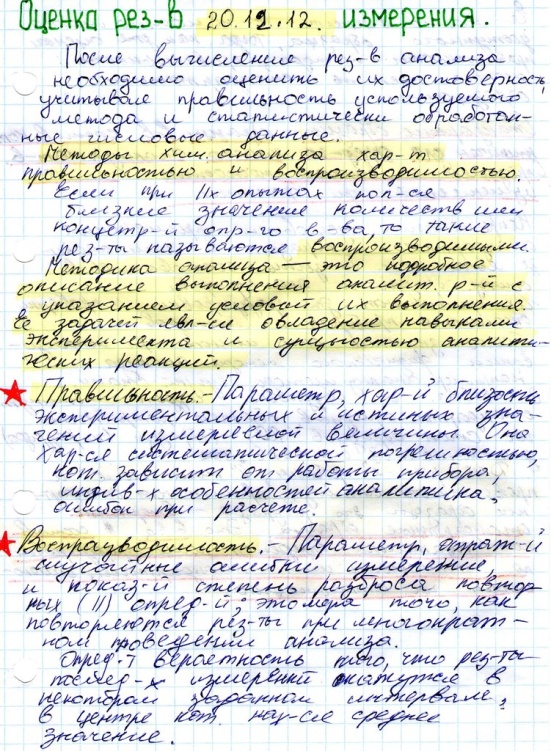 Оценка рез-в 20.12.12. измерения.
После вычисление рез-в анализа
необходимо оценить их достоверность,
учитывая правильность используемого
метода и статистически обработан-
ные числовые данные.
Методы хим. анализа хар-т
правильностью и воспроизводимостью.
Если при IIх опытах пол-ся
близкие значение количеств или
концетр-й опр-го в-ва, то такие
рез-ты называются воспроизводимыми.
Методика анализа — это подробное
описание выполнения аналит. р-й с
указанием условий их выполнения.
Её задачей явл-ся овладение навыками
эксперимента и сущностью аналити-
ческих реакций.
Правильность. - Параметр, хар-й близость
экспериментальных и истиных зна-
чений измеряемой величины. Она
хар-ся систематической погрешностью,
кот. зависит от работы прибора,
индив-х особенностей аналитика,
ошибок при расчете.
Воспразводимость. - Параметр, отраж-й
случайные ошибки измерения,
и показ-й степень разброса повтор
ных (II) опред-й; это мера того, как
повторяются рез-ты при многократ-
ном проведении анализа.
Опред-т вероятность того, что рез-ты
послед-х измерений окажутся в
некотором заданном интервале,
в центре кот. нах-ся среднее
значение.